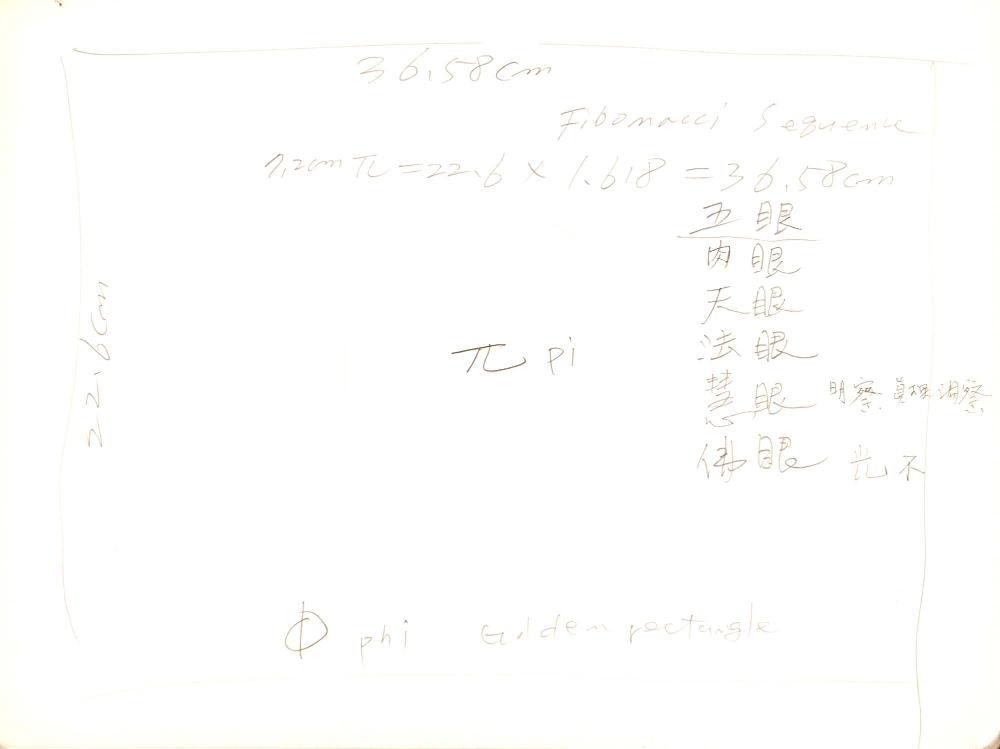 36.58cm
Fibonacci Sequence
7.2cm π = 22.6 × 1.618 = 36.58cm
五眼
肉眼
天眼
22.6cm
π pi
法眼
慧眼 明察 真理 洞察
佛眼 光不
Φ phi Golden rectangle